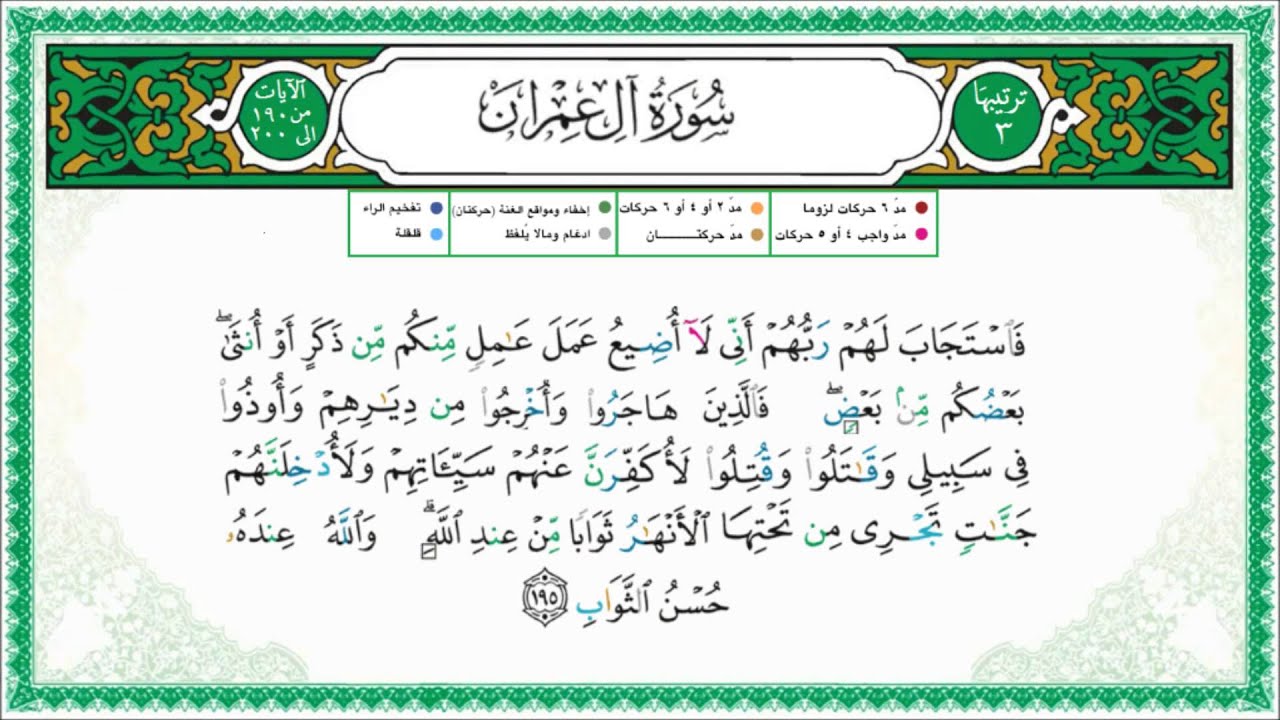 ترتيبها
٣
سُورَةُ آلِ عِمْرَانَ
الآيات
من ١٩٠
الى ٢٠٠
مدّ ٦ حركات لزوما
مدّ واجب ٤ أو ٥ حركات
مدّ ٢ أو ٤ أو ٦ حركات
مدّ حركتـــــــــان
إخفاء ومواقع الغنة (حركتان)
ادغام ومالا يُلفظ
تفخيم الراء
قلقلة
فَٱسْتَجَابَ لَهُمْ رَبُّهُمْ أَنِّى لَآ أُضِيعُ عَمَلَ عَـٰمِلٍۢ مِّنكُم مِّن ذَكَرٍ أَوْ أُنثَىٰ ۖ
بَعْضُكُم مِّنۢ بَعْضٍۢ ۖ فَٱلَّذِينَ هَاجَرُوا۟ وَأُخْرِجُوا۟ مِن دِيَـٰرِهِمْ وَأُوذُوا۟
فِى سَبِيلِى وَقَـٰتَلُوا۟ وَقُتِلُوا۟ لَأُكَفِّرَنَّ عَنْهُمْ سَيِّـَٔاتِهِمْ وَلَأُدْخِلَنَّهُمْ
جَنَّـٰتٍۢ تَجْرِى مِن تَحْتِهَا ٱلْأَنْهَـٰرُ ثَوَابًۭا مِّنْ عِندِ ٱللَّهِ ۗ وَٱللَّهُ عِندَهُۥ
حُسْنُ ٱلثَّوَابِ ١٩٥